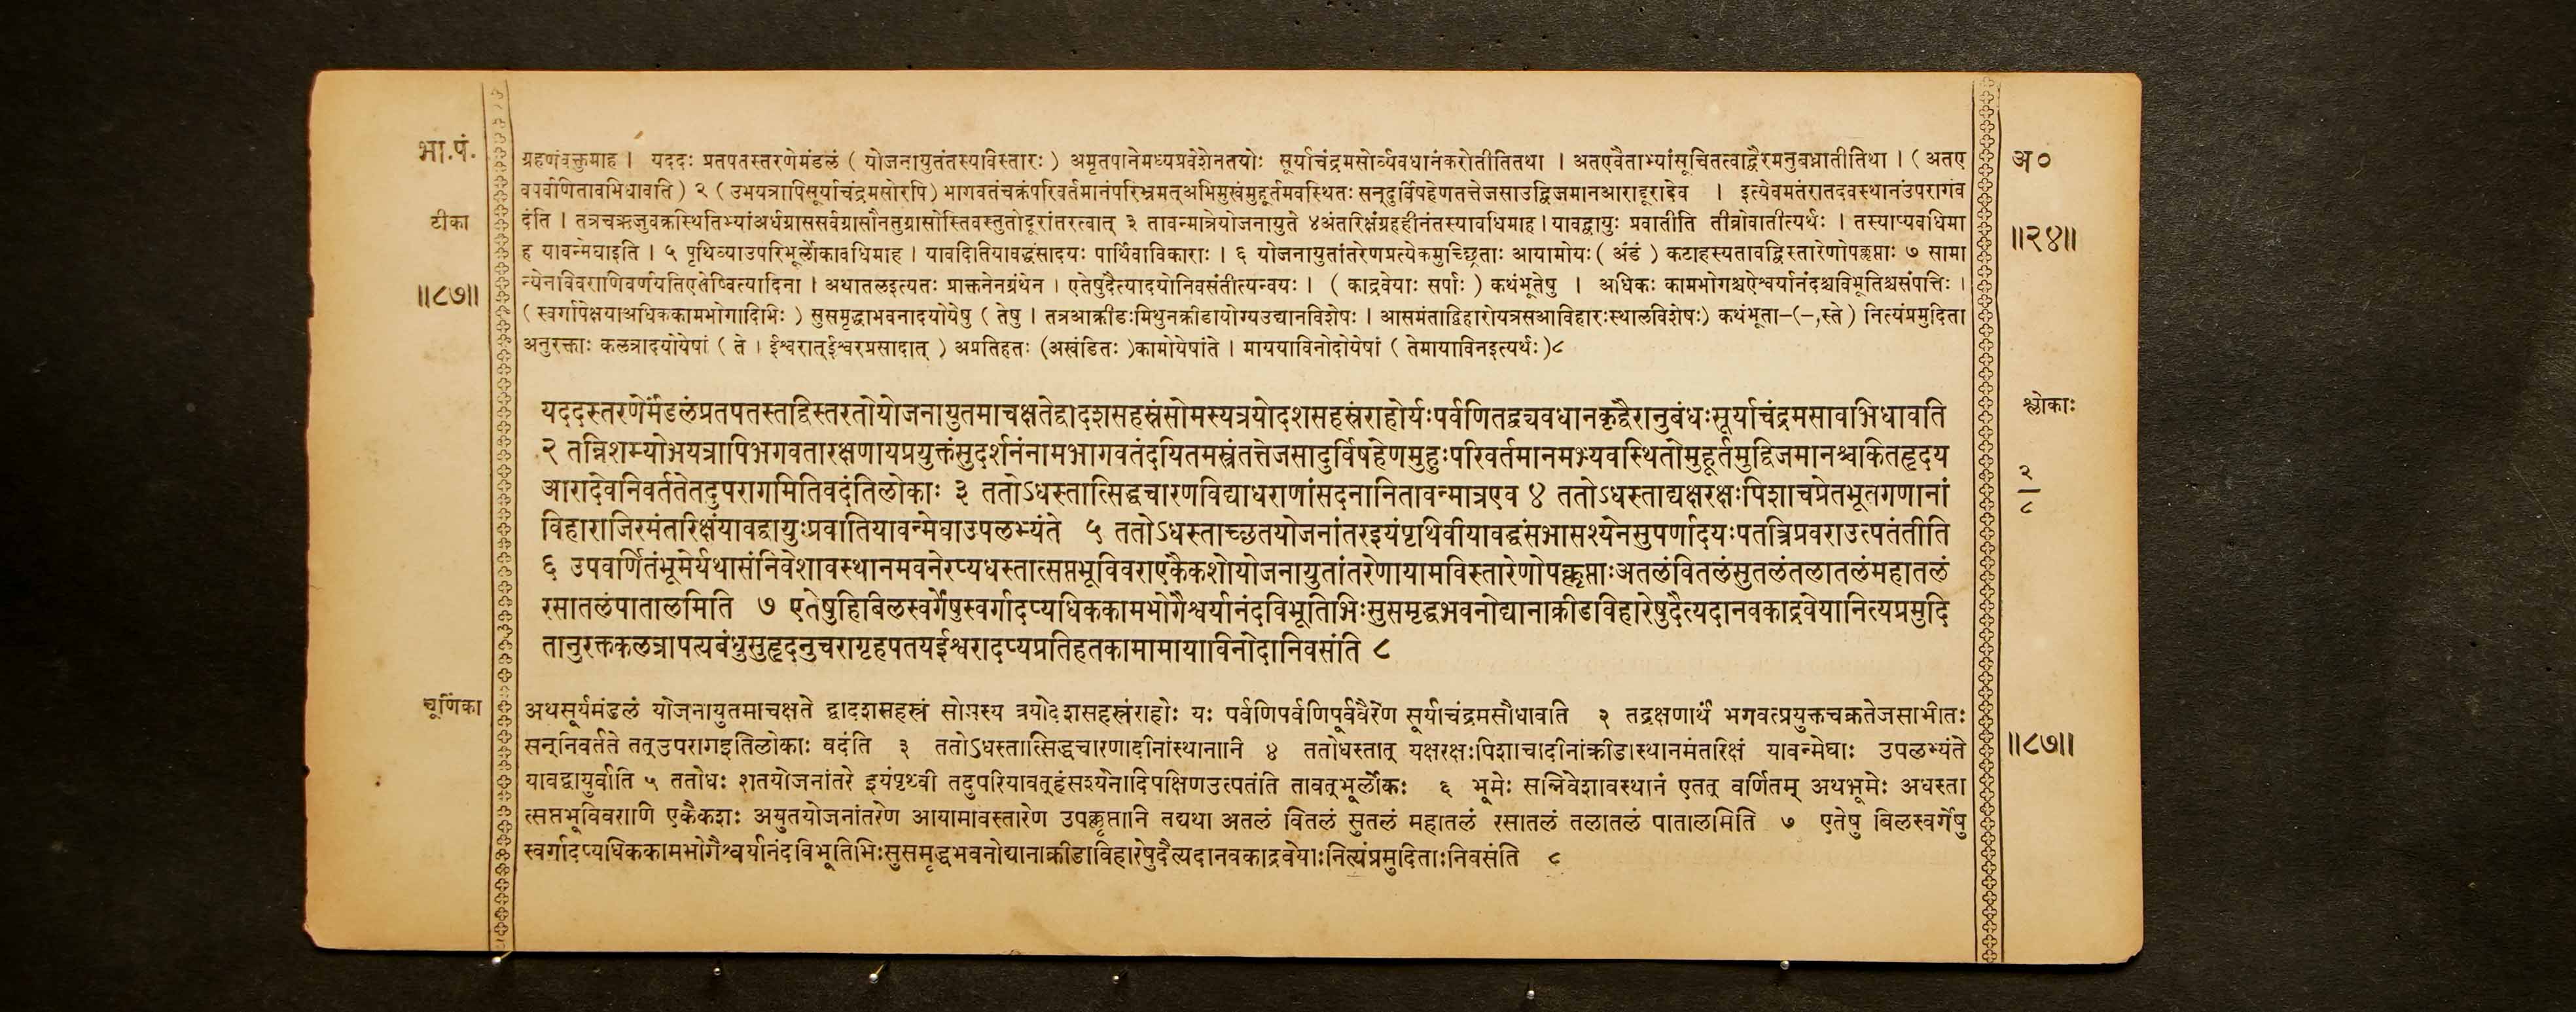 भा.पं.
ग्रहणंवक्तुमाह । यददः प्रतपतस्तरणेर्मंडलं ( योजनायुतंतस्यविस्तारः ) अमृतपानेमध्यप्रवेशेनतयोः सूर्याचंद्रमसोर्व्यवधानंकरोतीतितथा । अतएवैताभ्यांसूचितत्वाद्वैरमनुबध्नातीतिथा । ( अतए
अ०
वपर्वणितावभिधावति ) २ ( उभयत्रापिसूर्याचंद्रमसोरपि ) भागवतंचक्रंपरिवर्तमानंपरिभ्रमत्अभिमुखंमुहूर्तमवस्थितः सन्दुर्विषहेणतत्तेजसाउद्विजमानआराद्दूरादेव । इत्येवमतंरातदवस्थानंउपरागंव
टीका
दंति । तत्रचऋजुवक्रस्थितिभ्यांअर्धग्राससर्वग्रासौनतुग्रासोस्तिवस्तुतोदूरांतरत्वात् ३ तावन्मात्रेयोजनायुते ४अंतारिक्षंग्रहहीनंतस्यावधिमाह । यावद्वायुः प्रवातीति तीव्रोवातीत्यर्थः । तस्याप्यवधिमा
॥२४॥
ह यावन्मेघाइति । ५ पृथिव्याउपरिभूर्लोकावधिमाह । यावदितियावद्धंसादयः पार्थिवाविकाराः । ६ योजनायुतांतरेणप्रत्येकमुच्छ्रिताः आयामोयः ( अंडं ) कटाहस्यतावद्विस्तारेणोपक्लृप्ताः ७ सामा
॥८७॥
न्येनविवराणिवर्णयतिएतेष्वित्यादिना । अथातलइत्यतः प्राक्तनेनग्रंथेन । एतेषुदैत्यादयोनिवसंतीत्यन्वयः । ( काद्रवेयाः सर्पाः ) कथंभूतेषु । अधिकः कामभोगश्चऐश्वर्यानंदश्चविभूतिश्चसंपत्तिः ।
( स्वर्गापेक्षयाअधिककामभोगादिभिः ) सुसमृद्धाभवनादयोयेषु ( तेषु । तत्रआक्रीडःमिथुनक्रीडायोग्यउद्यानविशेषः । आसमंताद्विहारोयत्रसआविहारःस्थालविशेषः ) कथंभूता–(–,स्ते ) नित्यंप्रमुदिता
अनुरक्ताः कलत्रादयोयेषां ( ते । ईश्वरात्ईश्वरप्रसादात् ) अप्रतिहतः (अखंडितः )कामोयेषांते । माययाविनोदोयेषां ( तेमायाविनइत्यर्थः )८
यददस्तरणेर्मंडलंप्रतपतस्तद्विस्तरतोयोजनायुतमाचक्षतेद्वादशसहस्रंसोमस्यत्रयोदशसहस्रंराहोर्यःपर्वणितद्व्यवधानकृद्वैरानुबंधःसूर्याचंद्रमसावाभिधावति
श्लोकाः
२ तन्निशम्योभयत्रापिभगवतारक्षणायप्रयुक्तंसुदर्शनंनामभागवतंदयितमस्त्रंतत्तेजसादुर्विषहेणमुहुःपरिवर्तमानमभ्यवस्थितोमुहूर्तमुद्विजमानश्चकितहृदय
आरादेवनिवर्ततेतदुपरागमितिवदंतिलोकाः ३ ततोऽधस्तात्सिद्धचारणविद्याधराणांसदनानितावन्मात्रएव ४ ततोऽधस्ताद्यक्षरक्षःपिशाचप्रेतभूतगणानां
२
८
विहाराजिरमंतारिक्षंयावद्वायुःप्रवातियावन्मेघाउपलभ्यंते ५ ततोऽधस्ताच्छतयोजनांतरइयंपृथिवीयावद्धंसभासश्येनसुपर्णादयःपतत्रिप्रवराउत्पतंतीति
६ उपवर्णितंभूमेर्यथासंनिवेशावस्थानमवनेरप्यधस्तात्सप्तभूविवराएकैकशोयोजनायुतांतरेणायामविस्तारेणोपक्लृप्ताःअतलंवितलंसुतलंतलातलंमहातलं
रसातलंपातालमिति ७ एतेषुहिबिलस्वर्गेषुस्वर्गादप्यधिककामभोगैश्वर्यानंदविभूतिभिःसुसमृद्धभवनोद्यानाक्रीडाविहारेषुदैत्यदानवकाद्रवेयानित्यप्रमुदि
तानुरक्तकलत्रापत्यबंधुसुहृदनुचरागृहपतयईश्वरादप्यप्रतिहतकामामायाविनोदानिवसंति ८
चूर्णिका
अथसूर्यमंडलं योजनायुतमाचक्षते द्वादशसहस्रं सोमस्य त्रयोदशसहस्रंराहोः यः पर्वणिपर्वणिपूर्ववैरेण सूर्याचंद्रमसौधावति २ तद्रक्षणार्थं भगवत्प्रयुक्तचक्रतेजसाभीतः
सन्निवर्तते तत्उपरागइतिलोकाः वदंति ३ ततोऽधस्तात्सिद्धचारणादीनांस्थानानि ४ ततोधस्तात् यक्षरक्षःपिशाचादीनांक्रीडास्थानमंतारिक्षं यावन्मेघाः उपलभ्यंते
॥८७॥
यावद्वायुर्वाति ५ ततोधः शतयोजनांतरे इयंपृथ्वी तदुपरियावत्हंसश्येनादिपक्षिणउत्पतंति तावत्भूर्लोकः ६ भूमेः सन्निवेशावस्थानं एतत् वर्णितम् अथभूमेः अधस्ता
त्सप्तभूविवराणि एकैकशः अयुतयोजनांतरेण आयामावस्तारेण उपक्लृप्तानि तद्यथा अतलं वितलं सुतलं महातलं रसातलं तलातलं पातालमिति ७ एतेषु बिलस्वर्गेषु
स्वर्गादप्यधिककामभोगैश्वर्यानंदविभूतिभिःसुसमृद्धभवनोद्यानाक्रीडाविहारेषुदैत्यदानवकाद्रवेयाःनित्यंप्रमुदिताःनिवसंति ८